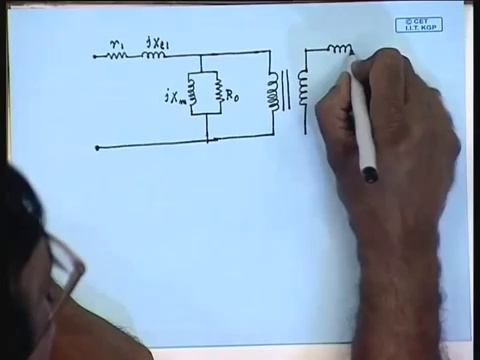 © CET
I.I.T. KGP
r1 jxl1
jXm R0